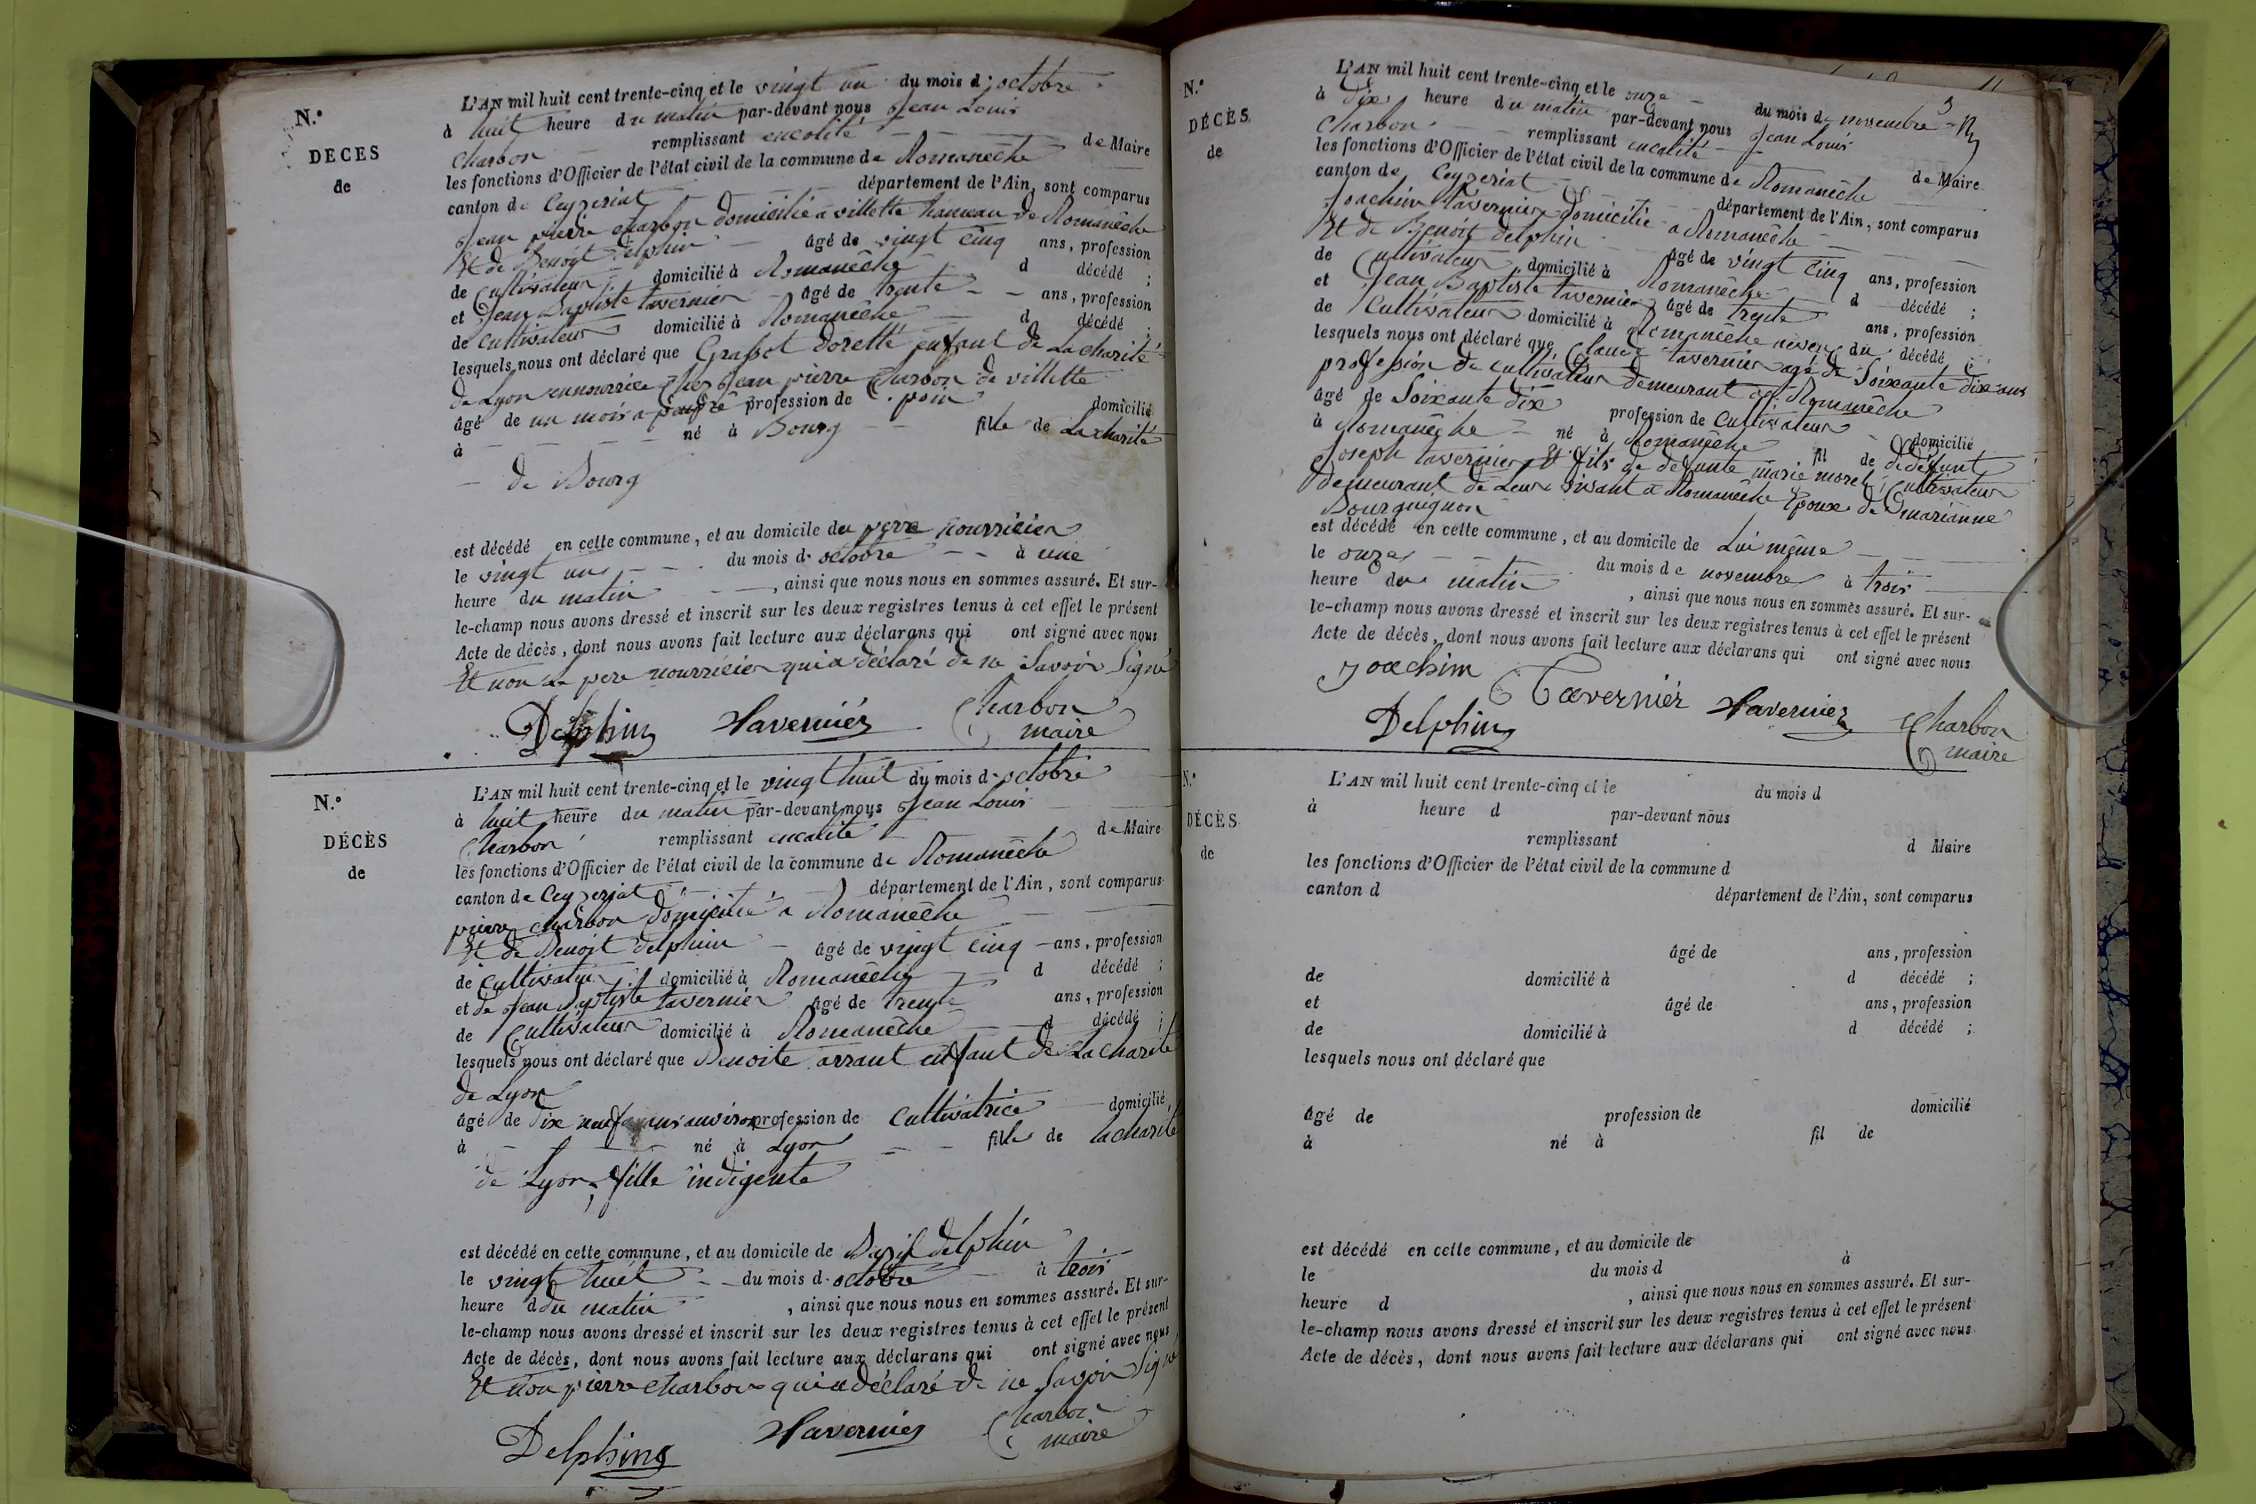 N.º
DECES
de
L'AN mil huit cent trente-cinq et le vingt un du mois d'octobre
à huit heure du matin par-devant nous Jean Louis
Charbon remplissant encalité de Maire
les fonctions d'Officier de l'état civil de la commune de Romanêche
canton de Ceyzeriat département de l'Ain, sont comparus
Jean pierre charbon domicilié a villette hameau de Romanêche
Et de Benoit Delphin âgé de vingt cinq ans, profession
de Cultivateur domicilié à Romanêche d décédé ;
et Jean Baptiste tavernier âgé de trente ans, profession
de cultivateur domicilié à Romanêche d décédé ;
lesquels nous ont déclaré que Dorette enfant de La charité
de Lyon chez Jean pierre Charbon de villette
âgé de un mois a profession de domicilié
à né à Bourg fille de La charité
de Bourg
est décédé en cette commune, et au domicile du père nourricier
le vingt un du mois d'octobre à une
heure du matin, ainsi que nous nous en sommes assuré. Et sur-
le-champ nous avons dressé et inscrit sur les deux registres tenus à cet effet le présent
Acte de décès, dont nous avons fait lecture aux déclarans qui ont signé avec nous
Et non Le pere nourricier qui a déclaré de ne Savoir Signé
Delphin Tavernier Charbon
maire
N.º
DÉCÈS
de
L'AN mil huit cent trente-cinq et le vingt huit du mois d'octobre
à huit heure du matin par-devant nous Jean Louis
Charbon remplissant encalité de Maire
les fonctions d'Officier de l'état civil de la commune de Romanêche
canton de Ceyzeriat département de l'Ain, sont comparus
pierre charbon domicilié a Romanêche
Et de Benoit delphin âgé de vingt cinq ans, profession
de Cultivateur domicilié à Romanêche d décédé ;
et de Jean Baptiste tavernier âgé de trente ans, profession
de Cultivateur domicilié à Romanêche d décédé ;
lesquels nous ont déclaré que Benoite arrant enfant de La charité
de Lyon
âgé de dix neuf ans environ profession de cultivatrice domicilié
à né à Lyon fille de la charité
de Lyon, fille indigente
est décédé en cette commune, et au domicile de delphin
le vingt huit du mois d'octobre à trois
heure d du matin, ainsi que nous nous en sommes assuré. Et sur-
le-champ nous avons dressé et inscrit sur les deux registres tenus à cet effet le présent
Acte de décès, dont nous avons fait lecture aux déclarans qui ont signé avec nous
Et non pierre charbon qui a déclaré de ne Savoir Signé
Delphin Tavernier Charbon
maire
N.º
DÉCÈS
de
L'AN mil huit cent trente-cinq et le onze du mois de novembre
à dix heure du matin par-devant nous Jean Louis
Charbon remplissant encalité de Maire
les fonctions d'Officier de l'état civil de la commune de Romanêche
canton de Ceyzeriat département de l'Ain, sont comparus
Joachim tavernier domicilié a Romanêche
Et de Benoit delphin âgé de vingt cinq ans, profession
de Cultivateur domicilié à Romanêche d décédé ;
et Jean Baptiste tavernier âgé de trente ans, profession
de Cultivateur domicilié à Romanêche neveu du décédé ;
lesquels nous ont déclaré que Claude tavernier agé de Soixante dix ans
profession de cultivateur demeurant a Romanêche
âgé de Soixante dix profession de Cultivateur domicilié
à Romanêche né à Romanêche fil de de défunt
Joseph tavernier Et fils de défunte marie morel Cultivateur
demeurant de Leur vivant a Romanêche Epoux de marianne
Bourguignon
est décédé en cette commune, et au domicile de Lui même
le onze du mois de novembre à trois
heure du matin, ainsi que nous nous en sommes assuré. Et sur-
le-champ nous avons dressé et inscrit sur les deux registres tenus à cet effet le présent
Acte de décès, dont nous avons fait lecture aux déclarans qui ont signé avec nous
Joachim Tavernier Tavernier
Delphin Charbon
maire
N.º
DÉCÈS
de
L'AN mil huit cent trente-cinq et le du mois d
à heure d par-devant nous
remplissant d Maire
les fonctions d'Officier de l'état civil de la commune d
canton d département de l'Ain, sont comparus
âgé de ans, profession
de domicilié à d décédé ;
et âgé de ans, profession
de domicilié à d décédé ;
lesquels nous ont déclaré que
âgé de profession de domicilié
à né à fil de
est décédé en cette commune, et au domicile de
le du mois d à
heure d , ainsi que nous nous en sommes assuré. Et sur-
le-champ nous avons dressé et inscrit sur les deux registres tenus à cet effet le présent
Acte de décès, dont nous avons fait lecture aux déclarans qui ont signé avec nous